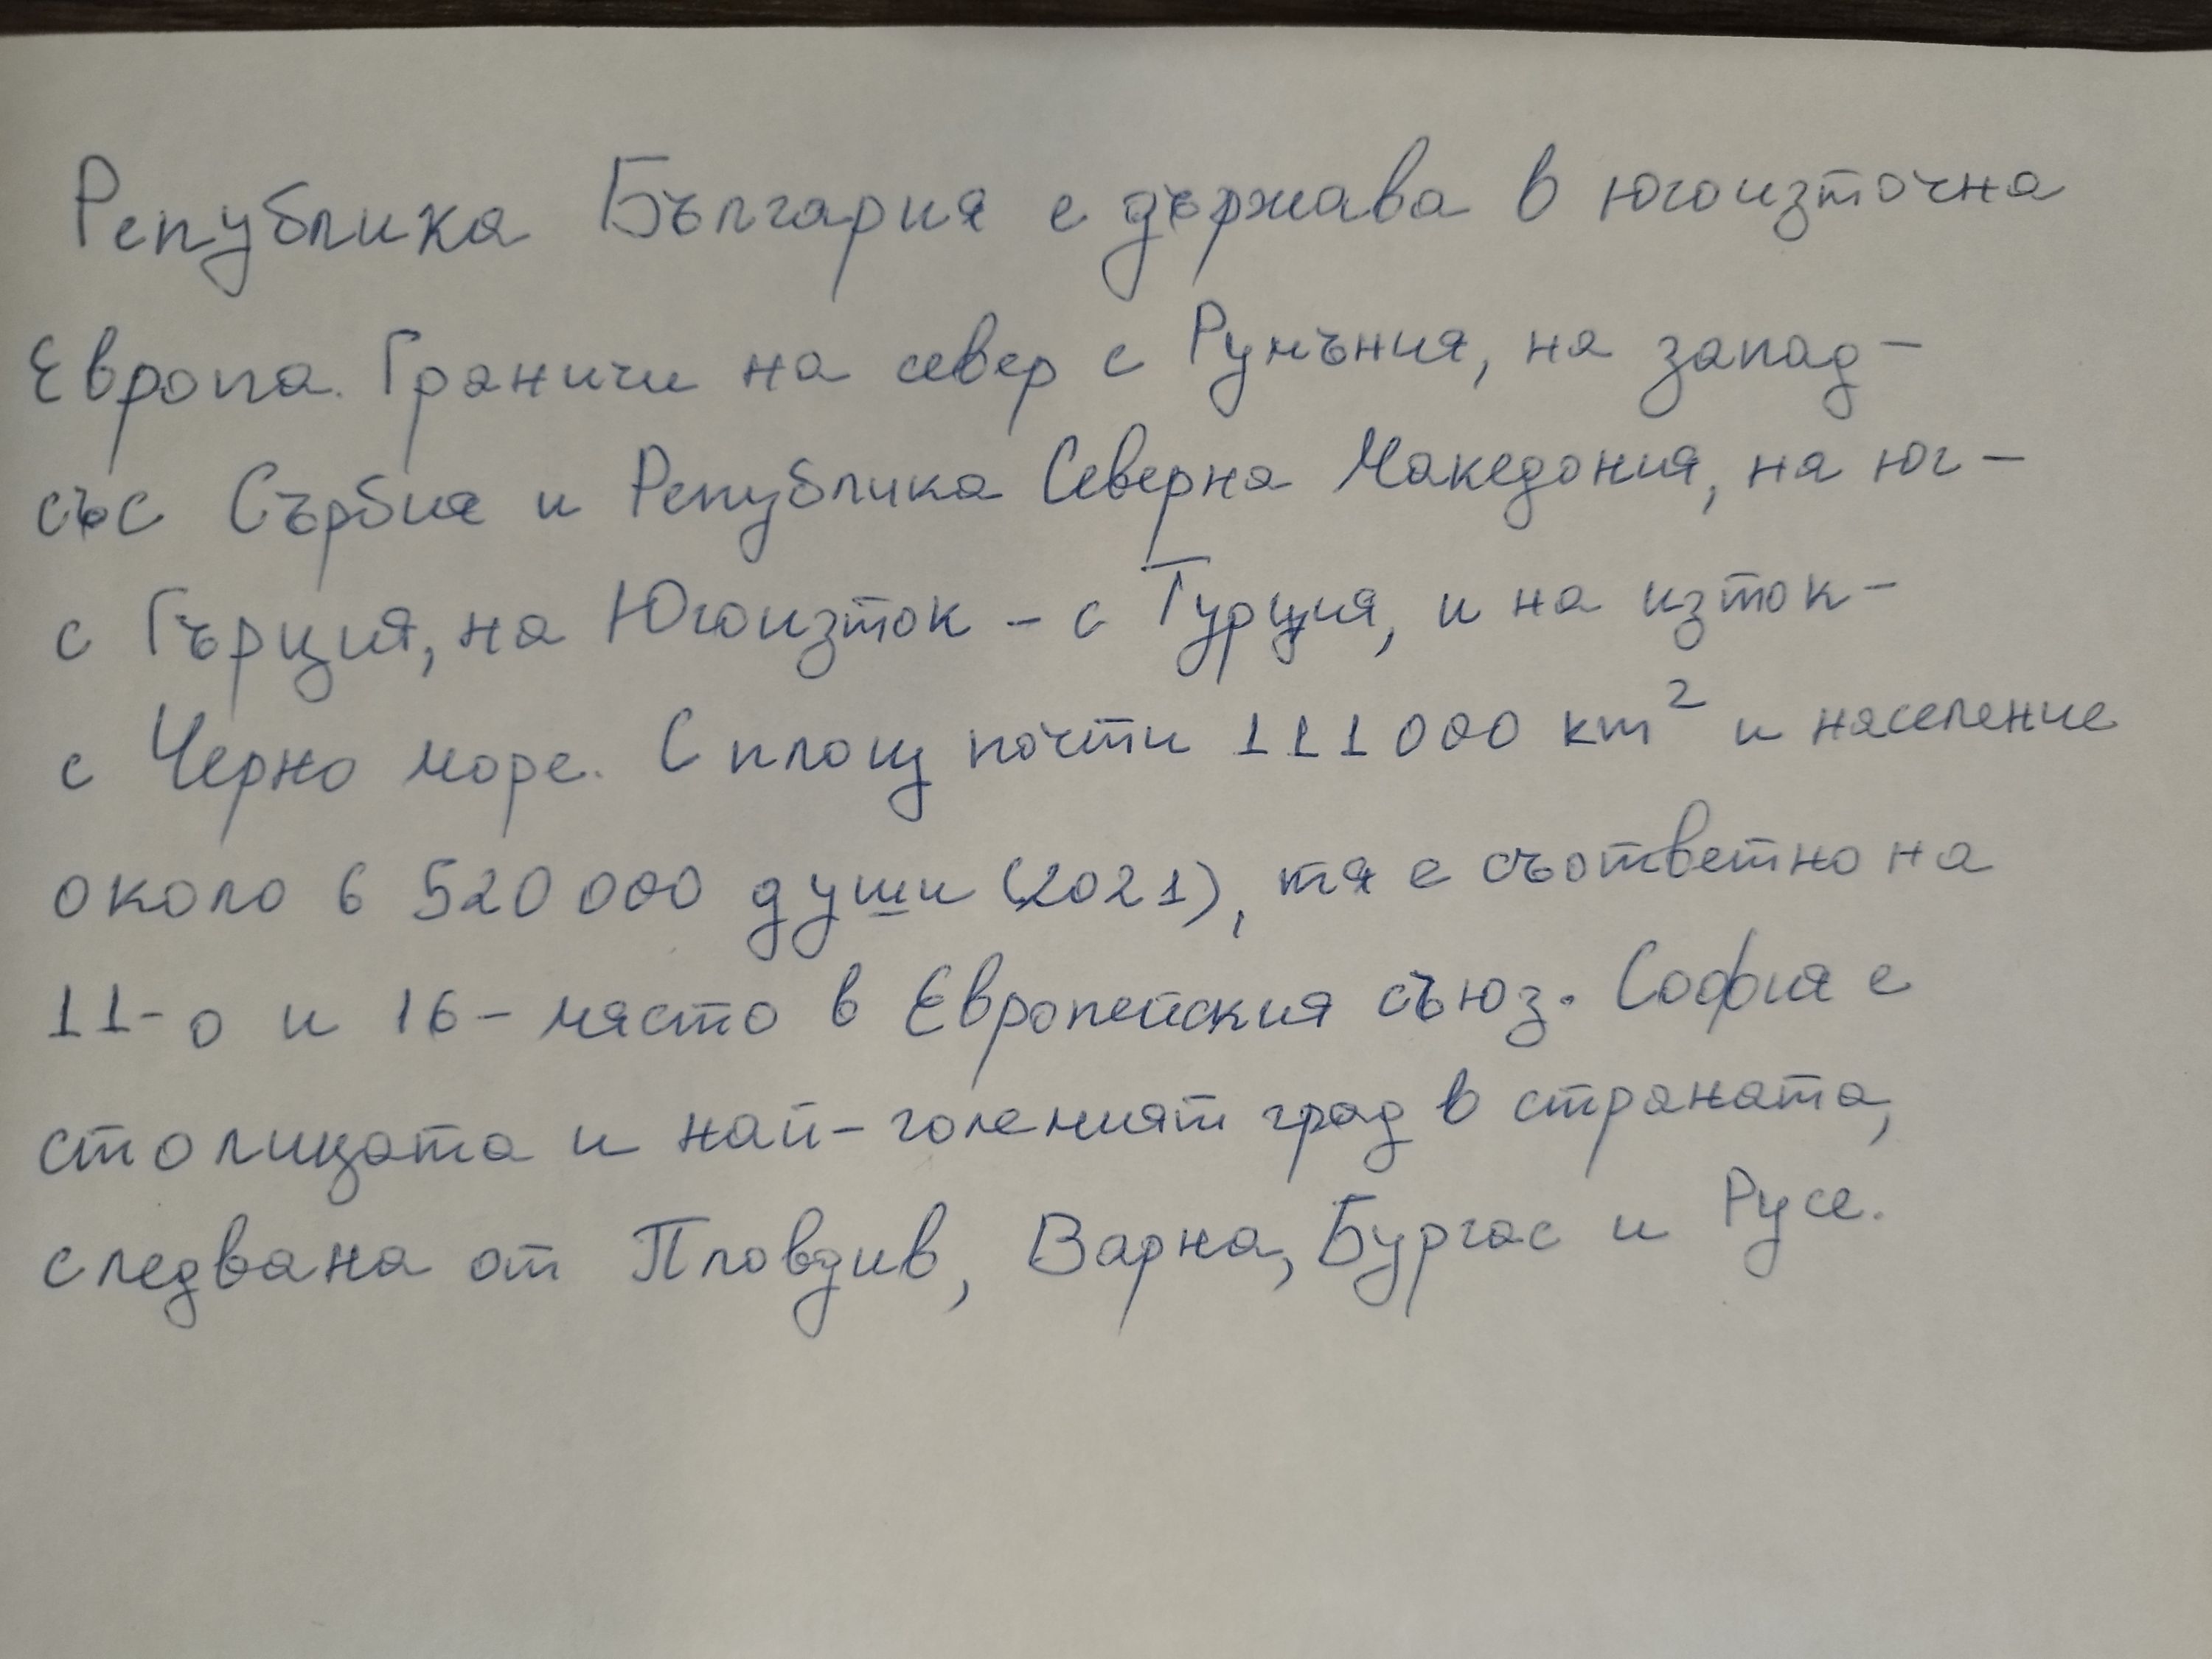 Република България е държава в югоизточна
Европа. Граничи на север с Румъния, на запад –
със Сърбия и Република Северна Македония, на юг –
с Гърция, на Югоизток – с Турция, и на изток –
с Черно море. С площ почти 111000 km² и население
около 6 520 000 души (2021), тя е съответно на
11-о и 16- място в Европейския съюз. София е
столицата и най-големият град в страната,
следвана от Пловдив, Варна, Бургас и Русе.